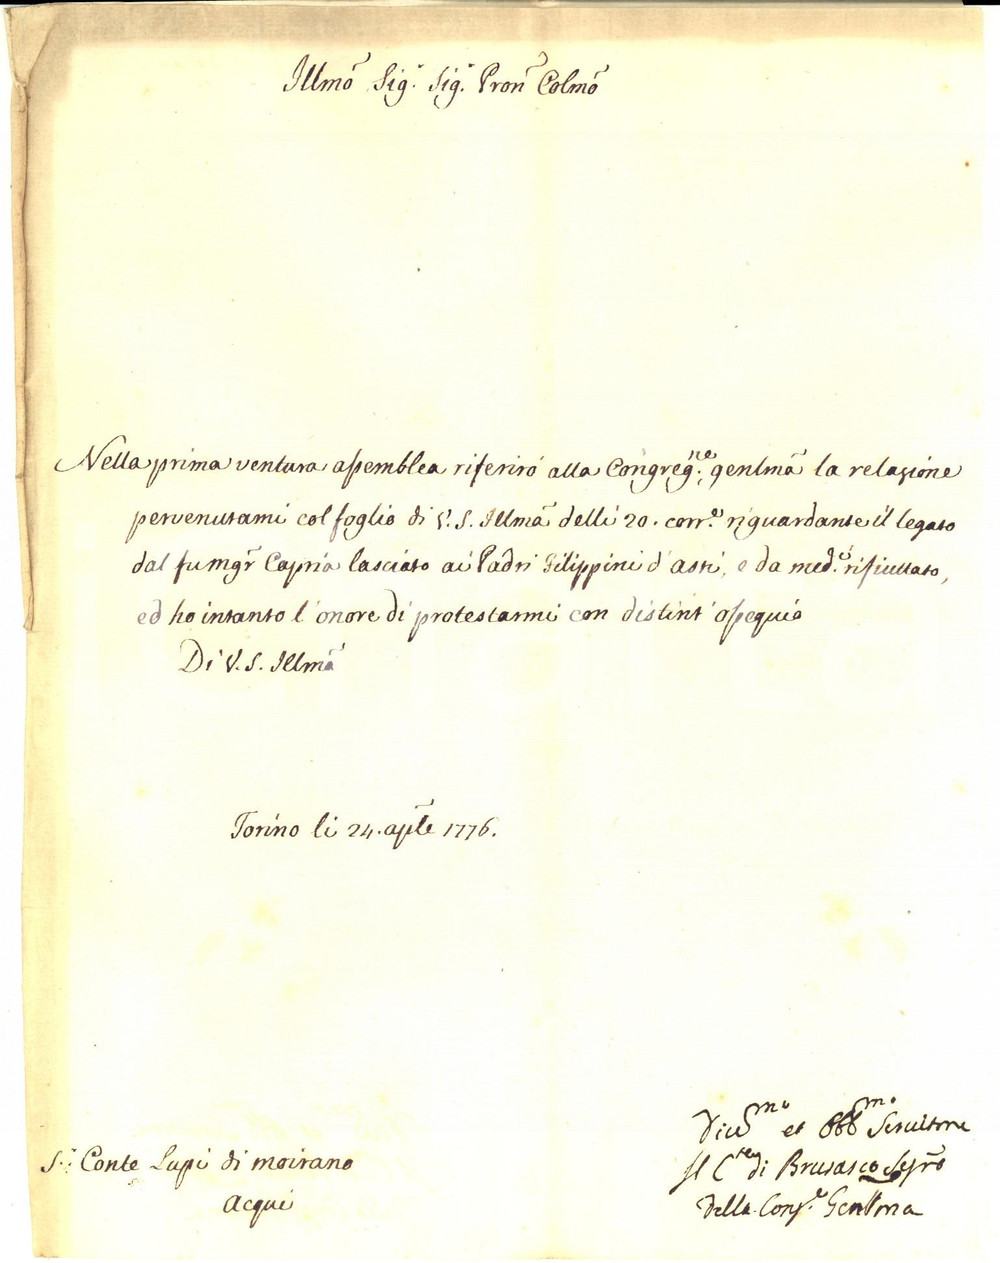 Illmo Sig.r Sig.r Pron Colmo
Nella prima ventura assemblea riferirò alla Congreg.ne genlma la relazione
pervenutami col foglio di V. S. Illma delli 20. corr.e riguardante il legato
dal fu mgr Capria lasciato ai Padri Filippini d'asti, e da med.i rifiuttato,
ed ho intanto l'onore di protestarmi con distint'ossequio
Di V. S. Illma
Torino li 24. aple 1776.
S.r Conte Lupi di moirano
Acqui
Divmo et Obbmo Servitore
Il Cte di Brusasco Segro
della Cong.e Genlma